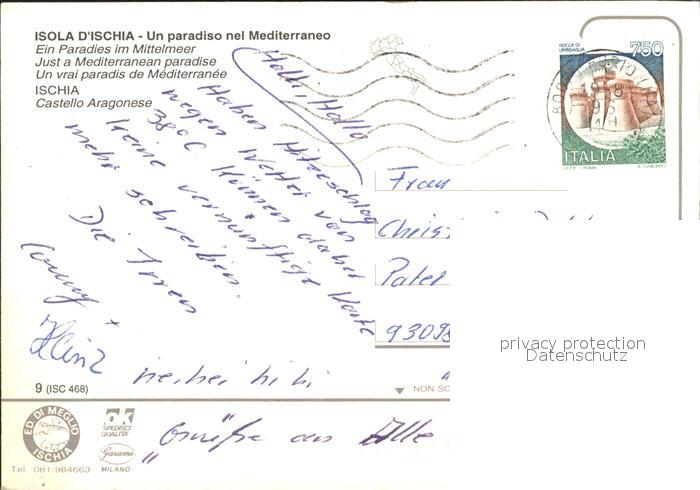 ISOLA D'ISCHIA - Un paradiso nel Mediterraneo
Ein Paradies im Mittelmeer
Just a Mediterranean paradise
Un vrai paradis de Méditerranée
ISCHIA
Castello Aragonese
ROCCA DI URBISAGLIA
750
ITALIA
Halli, Hallo
Haben Hitzeschlag
wegen Wetter von
38°C Können daher
keine vernünftige Karte
mehr schreiben.
Die Irren
Conny +
Heinz
hi hi
"Grüße an Alle
Frau
Christ
Pater
93098
privacy protection
Datenschutz
9 (ISC 468)
NON SC
ED. DI MEGLIO
ISCHIA
OK
SPEDISCI
QUALITA'
Garami
MILANO
Tel. 081/984663